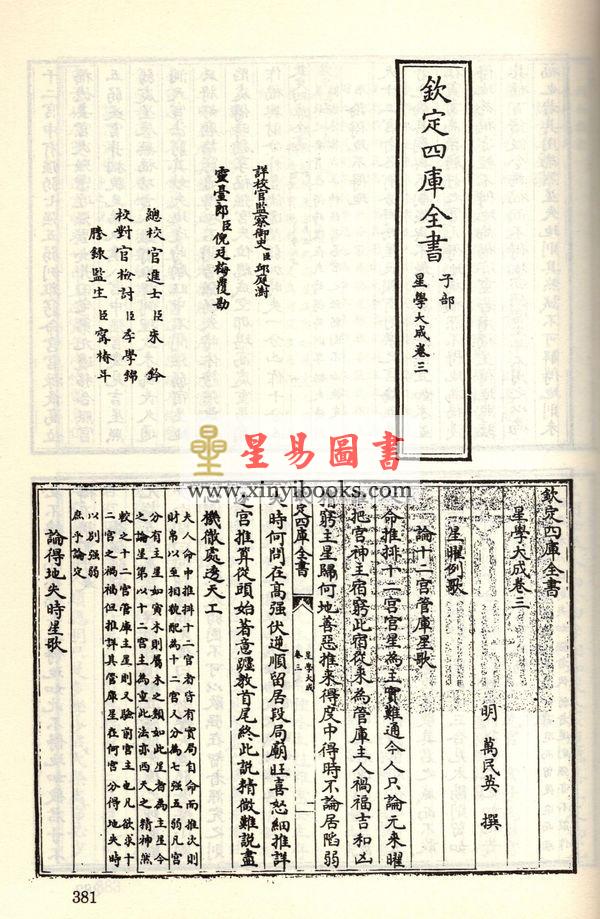 欽定四庫全書
子部
星學大成卷三
詳校官監察御史臣邱庭澍
靈臺郎臣倪廷梅覆勘
總校官進士臣朱鈐
校對官檢討臣李學錦
謄錄監生臣甯椿年
星易圖書
www.xinyibooks.com
欽定四庫全書
星學大成卷三
明 萬民英 撰
星曜例歌
論十二宮管庫星歌
命推排十二宮宮星為主實難通今人只論元來曜
把宮神主宿窮此宿從來為管庫主人禍福吉和凶
窮主星歸何地善惡推來得度中得時不論居陷弱
定四庫全書
星學大成
卷三
時何問在高強伏逆順留居段局廟旺喜怒細推詳
宮推算從頭始著意躔教首尾終此説精微難説盡
機微處透天工
夫人命中推排十二宮者皆有實局自命而推次則
財帛以至相貌配為十二宮人分為七強五弱凡宮
分有主星如寅木則屬木之類如此星者為主星今
之論星第以十二宮主為重此法亦西天之精神然
較之十二宮管庫主星則又驗前宮主也凡欲求十
二宮之禍福但推詳其管庫星在何宮分得地失時
以別強弱
庶乎論定
論得地失時星歌
381